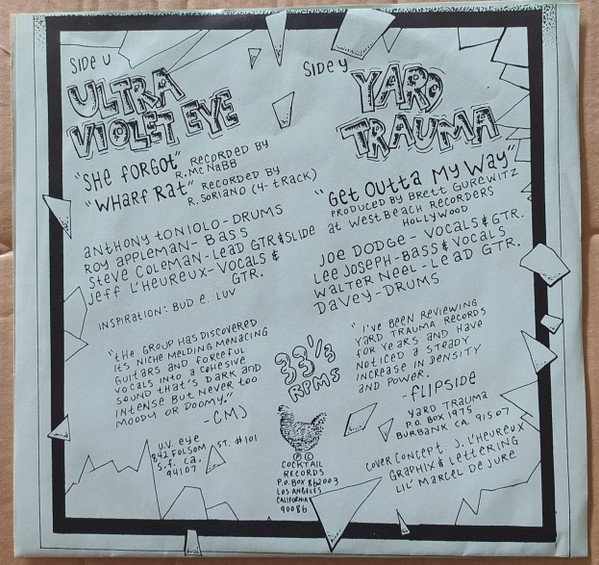 SIDE U
ULTRA
VIOLET EYE
"SHE FORGOT" RECORDED BY
R. McNABB
"WHARF RAT" RECORDED BY
R. SORIANO (4-TRACK)
ANTHONY TONIOLO - DRUMS
ROY APPLEMAN - BASS
STEVE COLEMAN - LEAD GTR & SLIDE
JEFF L'HEUREUX - VOCALS &
GTR.
INSPIRATION: BUD E. LUV
"THE GROUP HAS DISCOVERED
ITS NICHE MELDING MENACING
GUITARS AND FORCEFUL
VOCALS INTO A COHESIVE
SOUND THAT'S DARK AND
INTENSE BUT NEVER TOO
MOODY OR DOOMY."
- CMJ
U.V. EYE
842 FOLSOM ST. #101
S.F. CA.
94107
SIDE Y
YARD
TRAUMA
"GET OUTTA MY WAY"
PRODUCED BY BRETT GUREWITZ
AT WESTBEACH RECORDERS
HOLLYWOOD
JOE DODGE - VOCALS & GTR.
LEE JOSEPH - BASS & VOCALS
WALTER NEEL - LEAD GTR.
DAVEY - DRUMS
"I'VE BEEN REVIEWING
YARD TRAUMA RECORDS
FOR YEARS AND HAVE
NOTICED A STEADY
INCREASE IN DENSITY
AND POWER.
- FLIPSIDE
YARD TRAUMA
P.O. BOX 1975
BURBANK CA. 91507
33 1/3
RPMS
℗ ©
COCKTAIL
RECORDS
P.O. BOX 862003
LOS ANGELES
CALIFORNIA
90086
COVER CONCEPT J. L'HEUREUX
GRAPHIX & LETTERING
LIL' MARCEL DEJURE